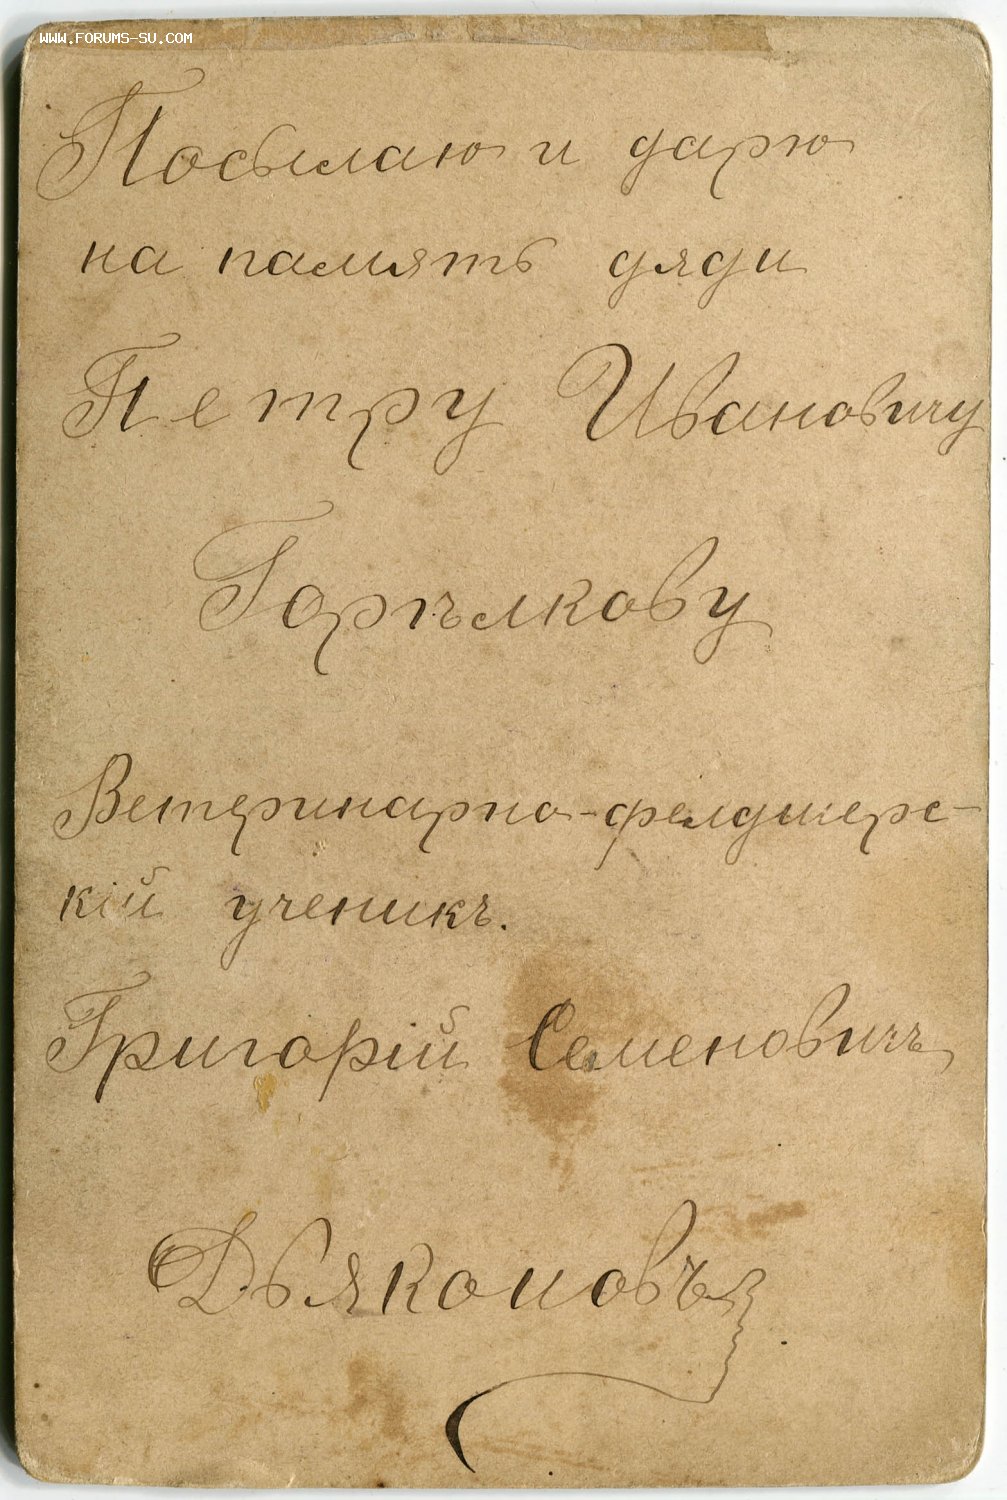 WWW.FORUMS-SU.COM
Посылаю и дарю
на память дяди
Петру Ивановичу
Горѣлкову
Ветеринарно-фелдшерс-
кій ученикъ.
Григорій Семеновичъ
Дьяконовъ